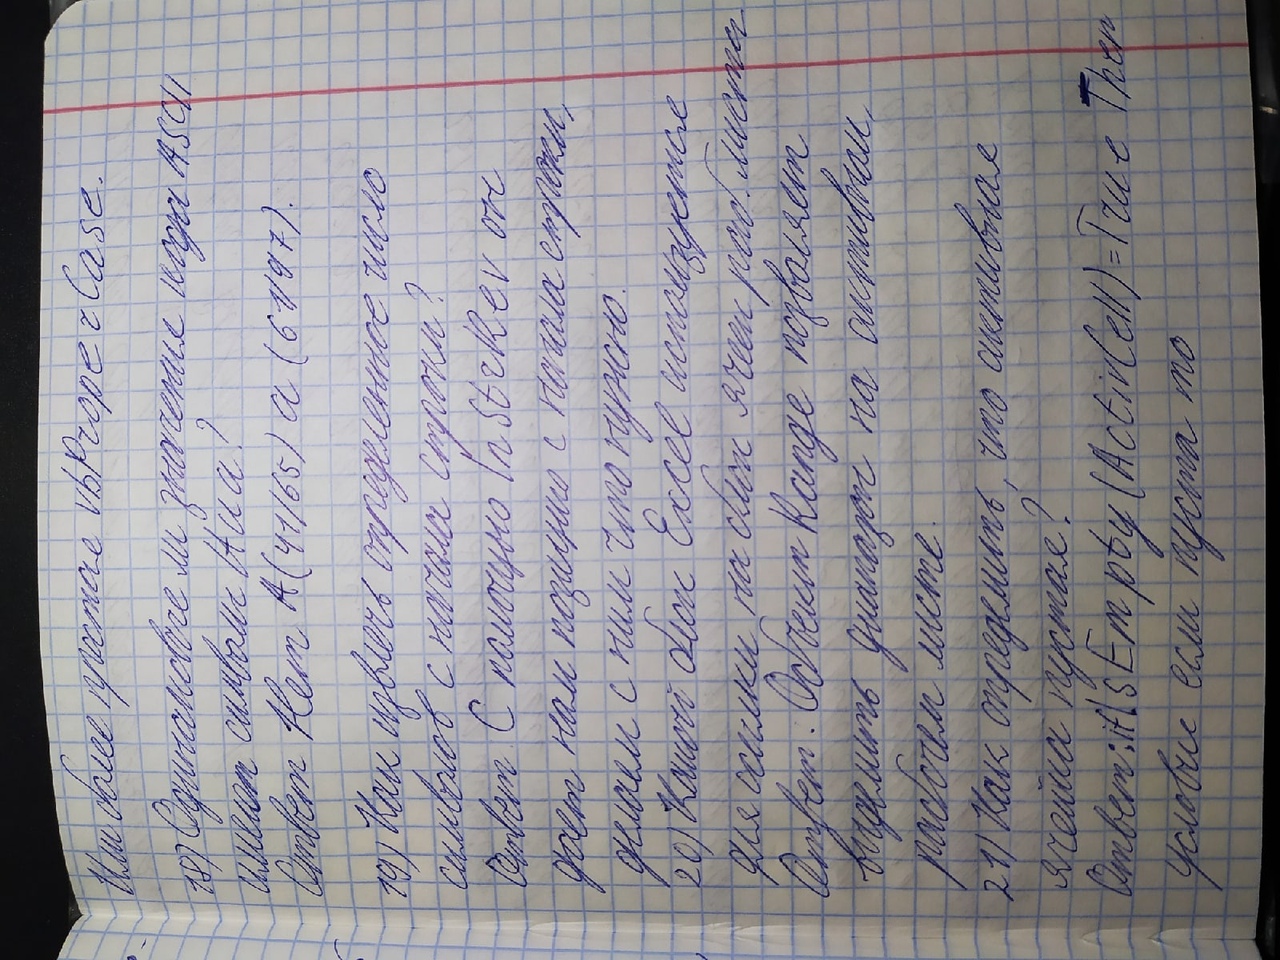 Или более простое vbProperCase.
18) Одинаковое ли значение кода ASCII
имеют символы А и а?
Ответ Нет А(41/65) а (61/97).
19) Как извлечь определенное число
символов с начала строки?
Ответ. С помощью InStrRev он
дает нам позицию с начала строки,
делаем с ним что нужно.
20) Какой объект Excel используется
для ссылки на объект ячеек раб. листа
Ответ: Объект Range позволяет
выделить диапазон на активном
рабочем листе.
21) Как определить, что активная
ячейка пустая?
Ответ: if IsEmpty (ActivCell) = True Then
условие если пуста то